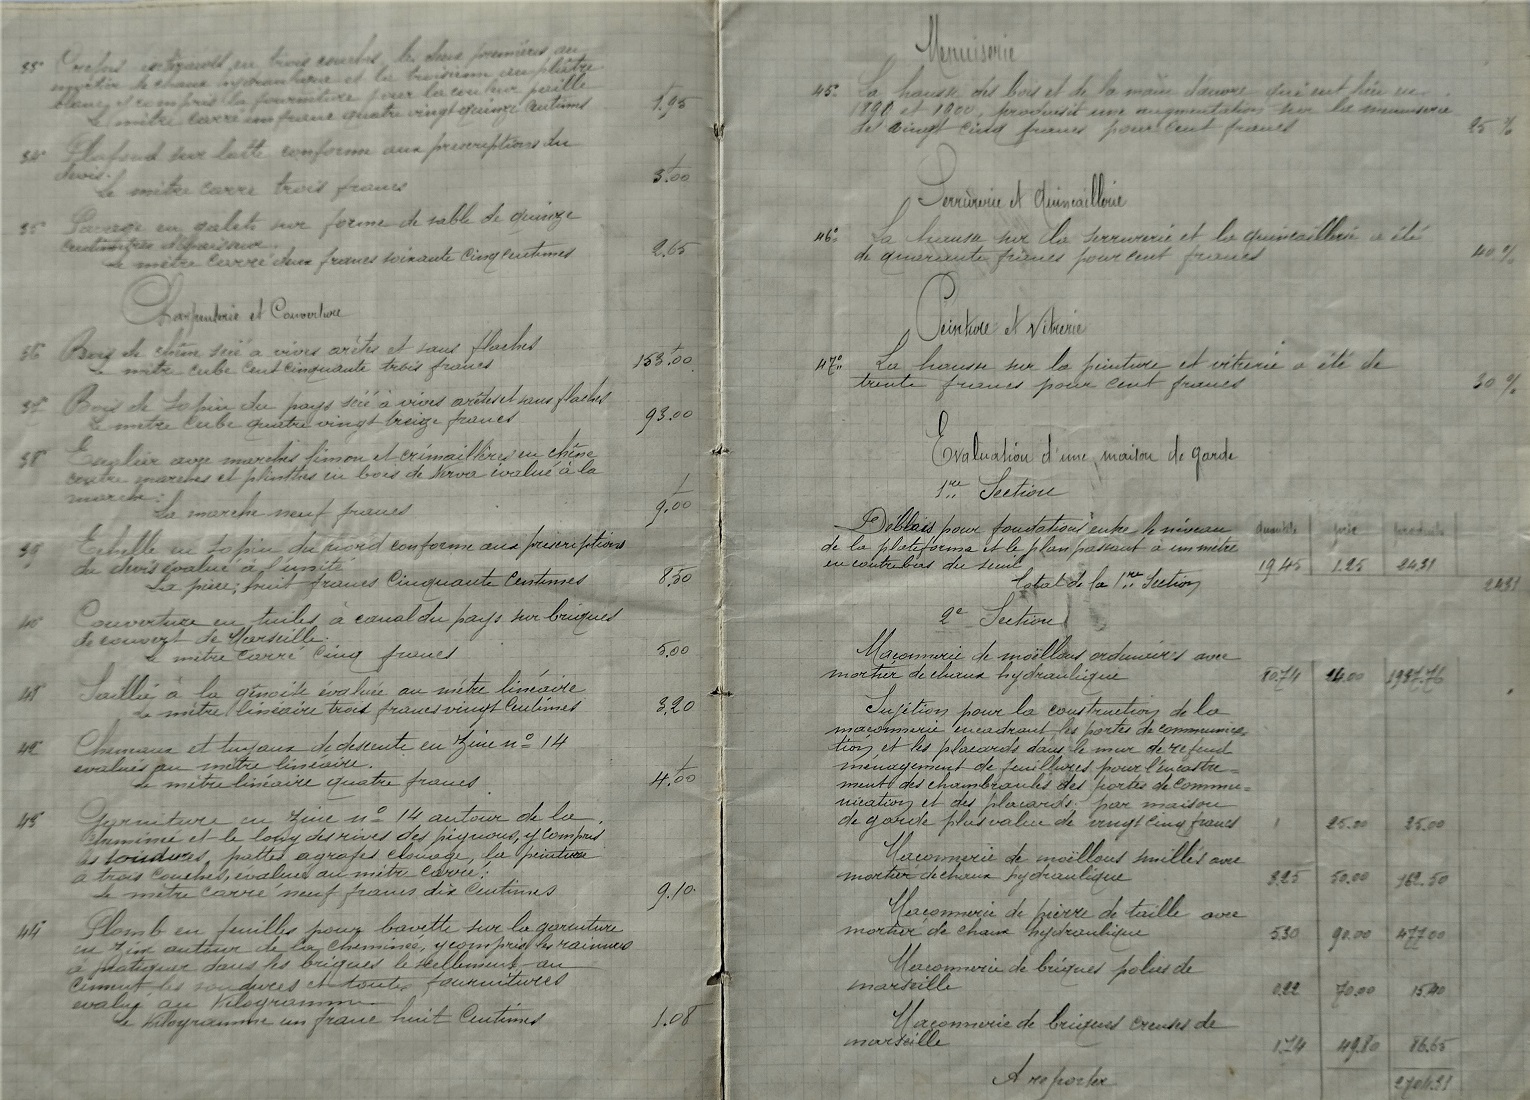 33° Crépis extérieurs en trois couches, les deux premières au
mortier de chaux hydraulique et la troisième au plâtre
blanc y compris la fourniture pour la couleur paille
Le mètre carré un franc quatre vingt quinze centimes 1.95
34° Plafond sur latte conforme aux prescriptions du
devis.
Le mètre carré trois francs 3.00
35° Pavage en galets sur forme de sable de quinze
centimètres d'épaisseur.
Le mètre carré deux francs soixante cinq centimes 2.65
Charpenterie et Couverture
36° Bois de chêne scié a vives arêtes et sans flaches
Le mètre cube cent cinquante trois francs 153.00
37° Bois de sapin du pays scié à vives arêtes et sans flaches
Le mètre cube quatre vingt treize francs 93.00
38° Escalier avec marches limon et crémaillères en chêne
contre marches et plinthes en bois de évalué à la
marche:
La marche neuf francs 9.00
39° Echelle en sapin du nord conforme aux prescriptions
du devis évalué à l'unité
La pièce; huit francs cinquante centimes 8.50
40° Couverture en tuiles à canal du pays sur briques
de couvert de Marseille.
Le mètre carré cinq francs 5.00
41° Saillie à la génoise évaluée au mètre linéaire
Le mètre linéaire trois francs vingt centimes 3.20
42° Cheneaux et tuyaux de descente en zinc n° 14
évalués au mètre linéaire.
Le mètre linéaire quatre francs 4.00
43° Garniture en zinc n° 14 autour de la
cheminée et le long des rives des pignons, y compris
les soudures, pattes agrafes clouage, la peinture
à trois couches, évaluée au mètre carré:
Le mètre carré neuf francs dix centimes 9.10
44° Plomb en feuilles pour bavette sur la garniture
en zinc autour de la cheminée, y compris les rainures
à pratiquer dans les briques le scellement au
ciment les soudures et toutes fournitures
évalué au kilogramme
Le kilogramme un franc huit centimes 1.08
Menuiserie
45° La hausse des bois et de la main d'œuvre qui eut lieu en
1890 et 1900, produisit une augmentation sur la menuiserie
de vingt cinq francs pour cent francs 25 %
Serrurerie et Quincaillerie
46° La hausse sur la serrurerie et la quincaillerie a été
de quarante francs pour cent francs 40 %
Peinture et Vitrerie
47° La hausse sur la peinture et vitrerie a été de
trente francs pour cent francs 30 %
Evaluation d'une maison de garde
1re Section
Déblais pour fondations entre le niveau quantité prix produits
de la plateforme et le plan passant à un mètre
en contrebas du seuil 19.45 1.25 24.31
Total de la 1re Section 24.31
2e Section
Maçonnerie de moëllons ordinaires avec
mortier de chaux hydraulique 80.74 24.00 1937.76
Sujétion pour la construction de la
maçonnerie encadrant les portes de communica
tion et les placards dans le mur de refend
ménagement de feuillures pour l'encastre=
ment des chambranles des portes de commu=
nication et des placards, par maison
de garde plus value de vingt cinq francs 1 25.00 25.00
Maçonnerie de moëllons smillés avec
mortier de chaux hydraulique 3.25 50.00 162.50
Maçonnerie de pierre de taille avec
mortier de chaux hydraulique 5.30 90.00 477.00
Maçonnerie de briques pleines de
marseille 0.22 70.00 15.40
Maçonnerie de briques creuses de
marseille 1.74 49.80 86.65
A reporter 2704.31